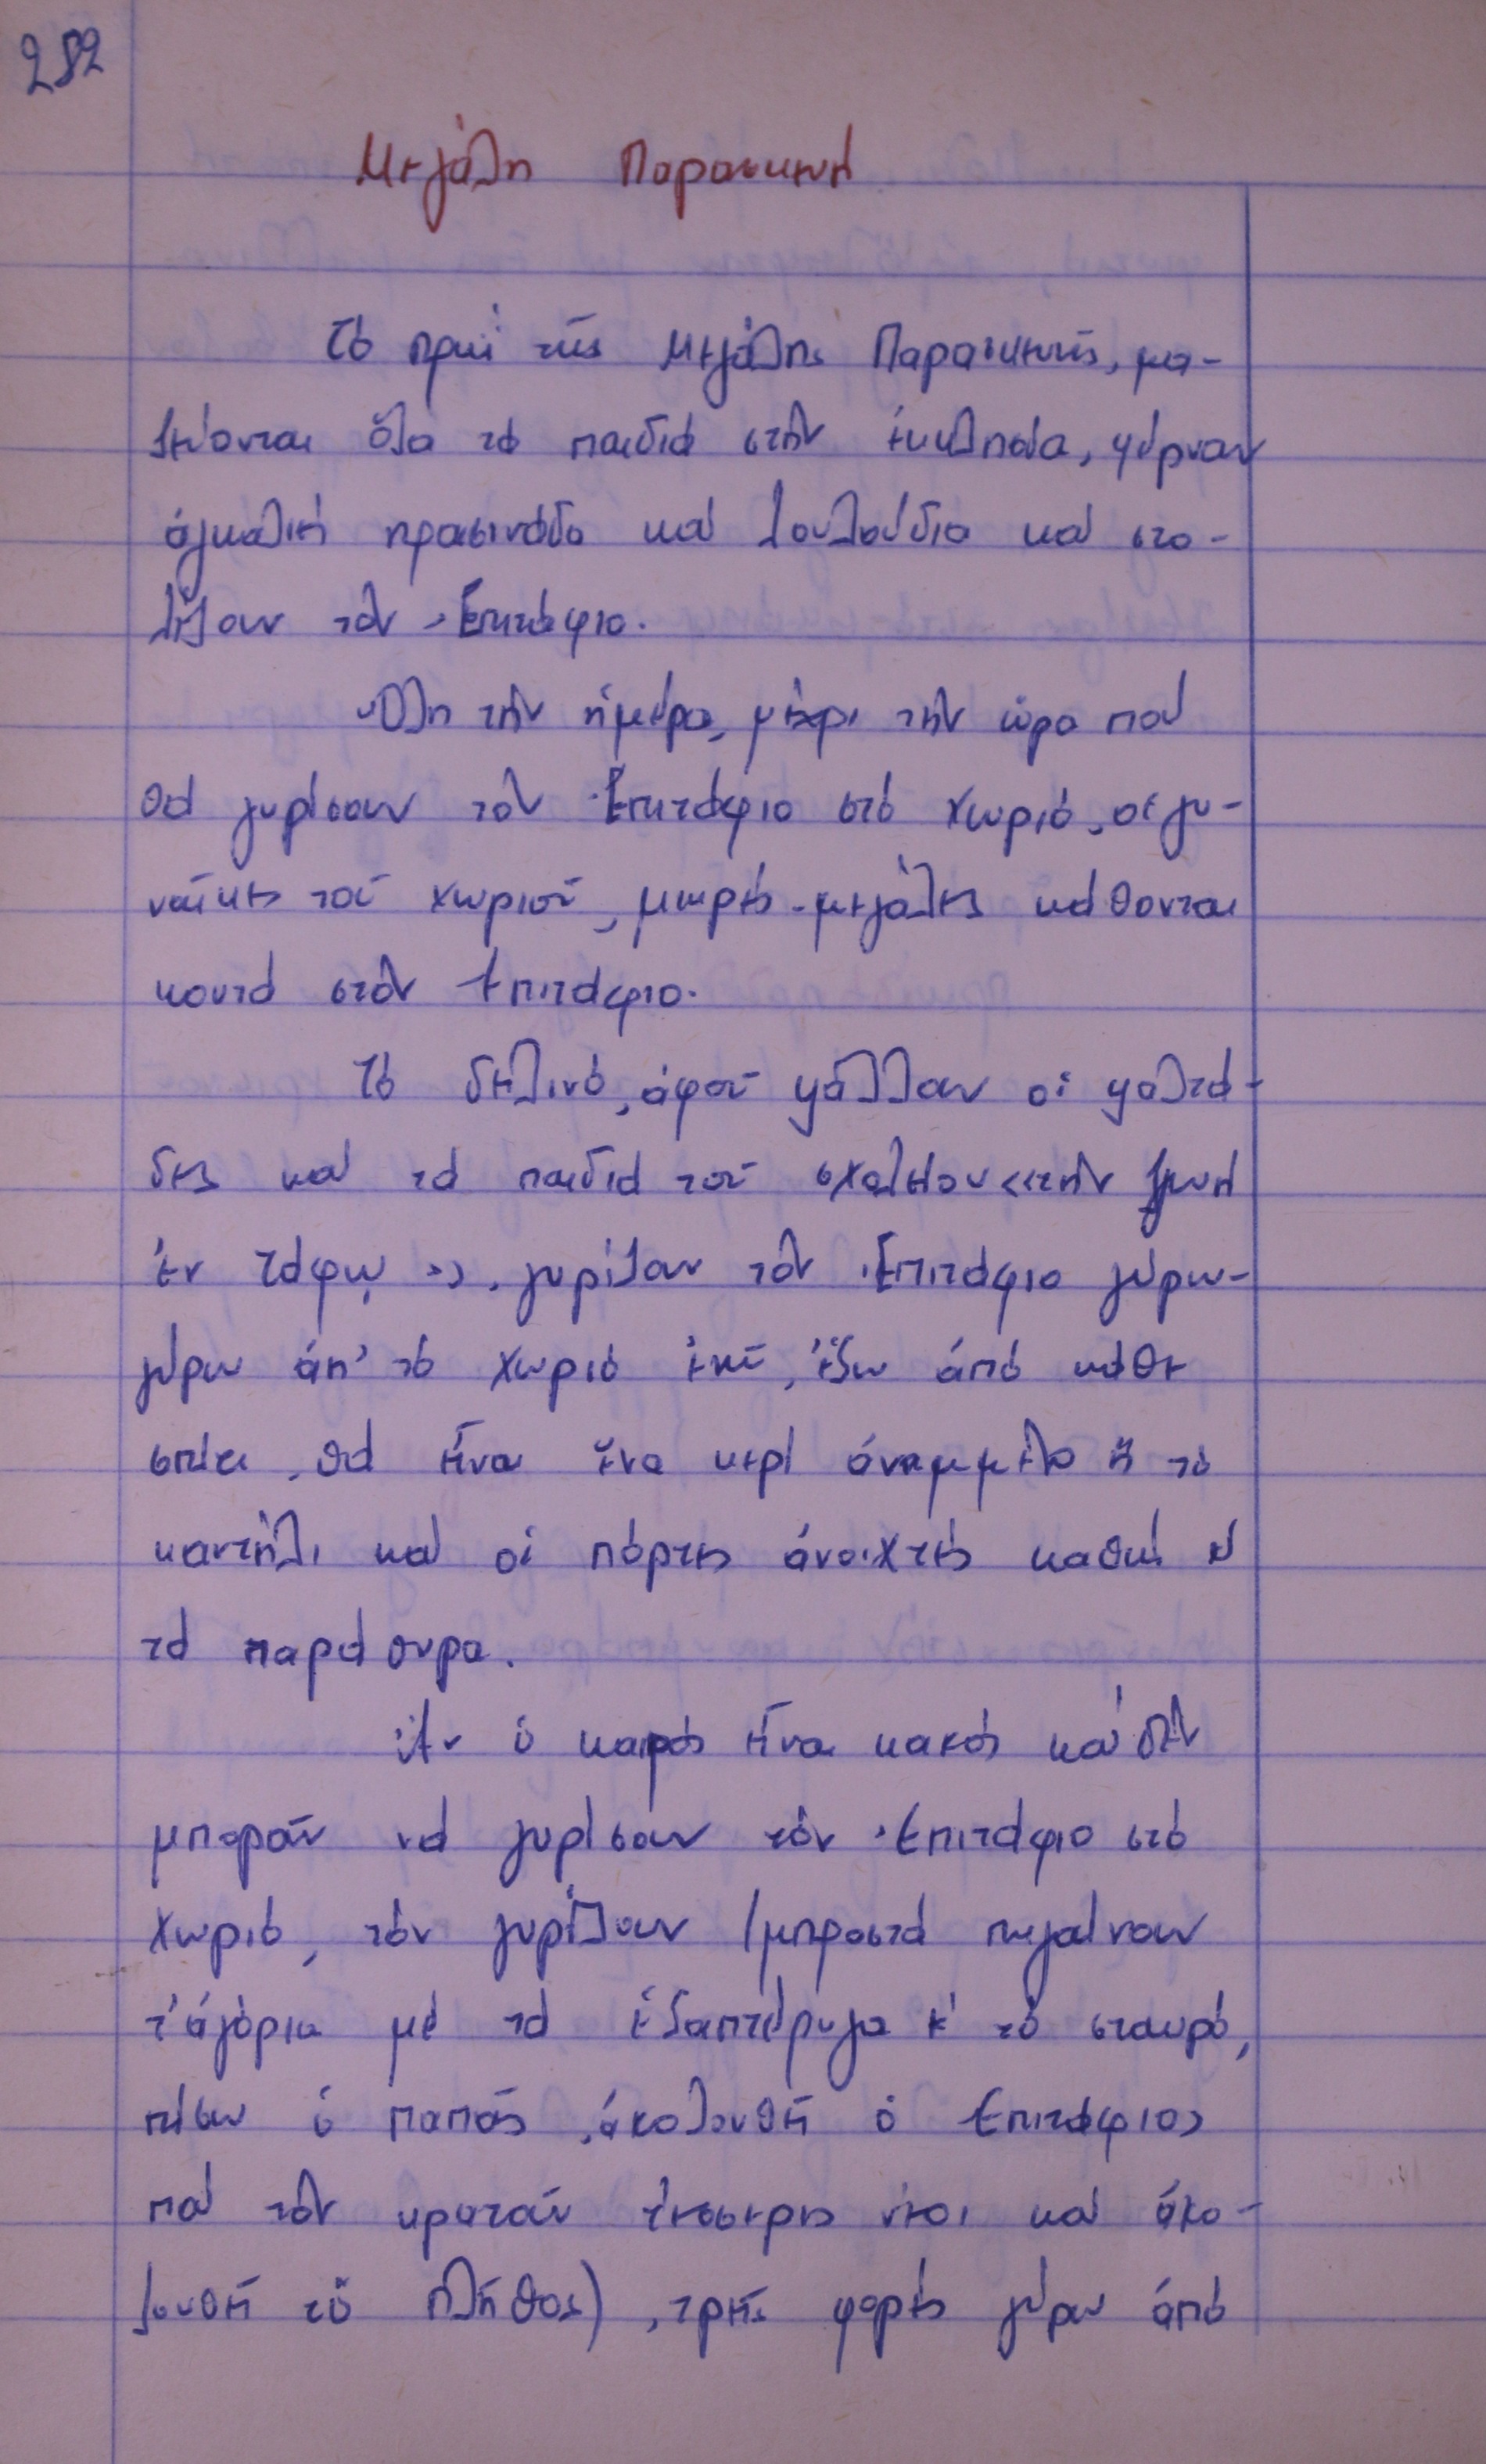 282
Μεγάλη Παρασκευή
Τό πρωί τῆς Μεγάλης Παρασκευῆς, μα-
ζεύονται ὅλα τά παιδιά στήν ἐκκλησία, φέρναν
ἀγκαλιή πρασινάδα καί λουλούδια καί στο-
λίζουν τόν Ἐπιτάφιο.
Ὅλη τήν ἡμέρα, μέχρι τήν ὥρα πού
θά γυρίσουν τόν Ἐπιτάφιο στό χωριό, οἱ γυ-
ναῖκες τοῦ χωριοῦ, μικρές-μεγάλες κάθονται
κοντά στόν Ἐπιτάφιο.
Τό δειλινό, ἀφοῦ ψάλλουν οἱ ψαλτά-
δες καί τά παιδιά τοῦ σχολείου «τήν ζωή
ἐν τάφῳ», γυρίζουν τόν Ἐπιτάφιο γύρω-
γύρω ἀπ' τό χωριό ἐκεῖ, ἔξω ἀπό κάθε
σπίτι, θά εἶναι ἕνα κερί ἀναμμένο ἤ τό
καντήλι καί οἱ πόρτες ἀνοιχτές καθώς κ'
τά παράθυρα.
Ἄν ὁ καιρός εἶναι κακός καί δέν
μποροῦν νά γυρίσουν τόν Ἐπιτάφιο στό
χωριό, τόν γυρίζουν (μπροστά πηγαίνουν
τ' ἀγόρια μέ τά ἑξαπτέρυγα κ' τό σταυρό,
πίσω ὁ παπάς, ἀκολουθεῖ ὁ Ἐπιτάφιος
πού τόν κρατοῦν τέσσερις νέοι καί ἀκο-
λουθεῖ τό πλῆθος), τρεῖς φορές γύρω ἀπό